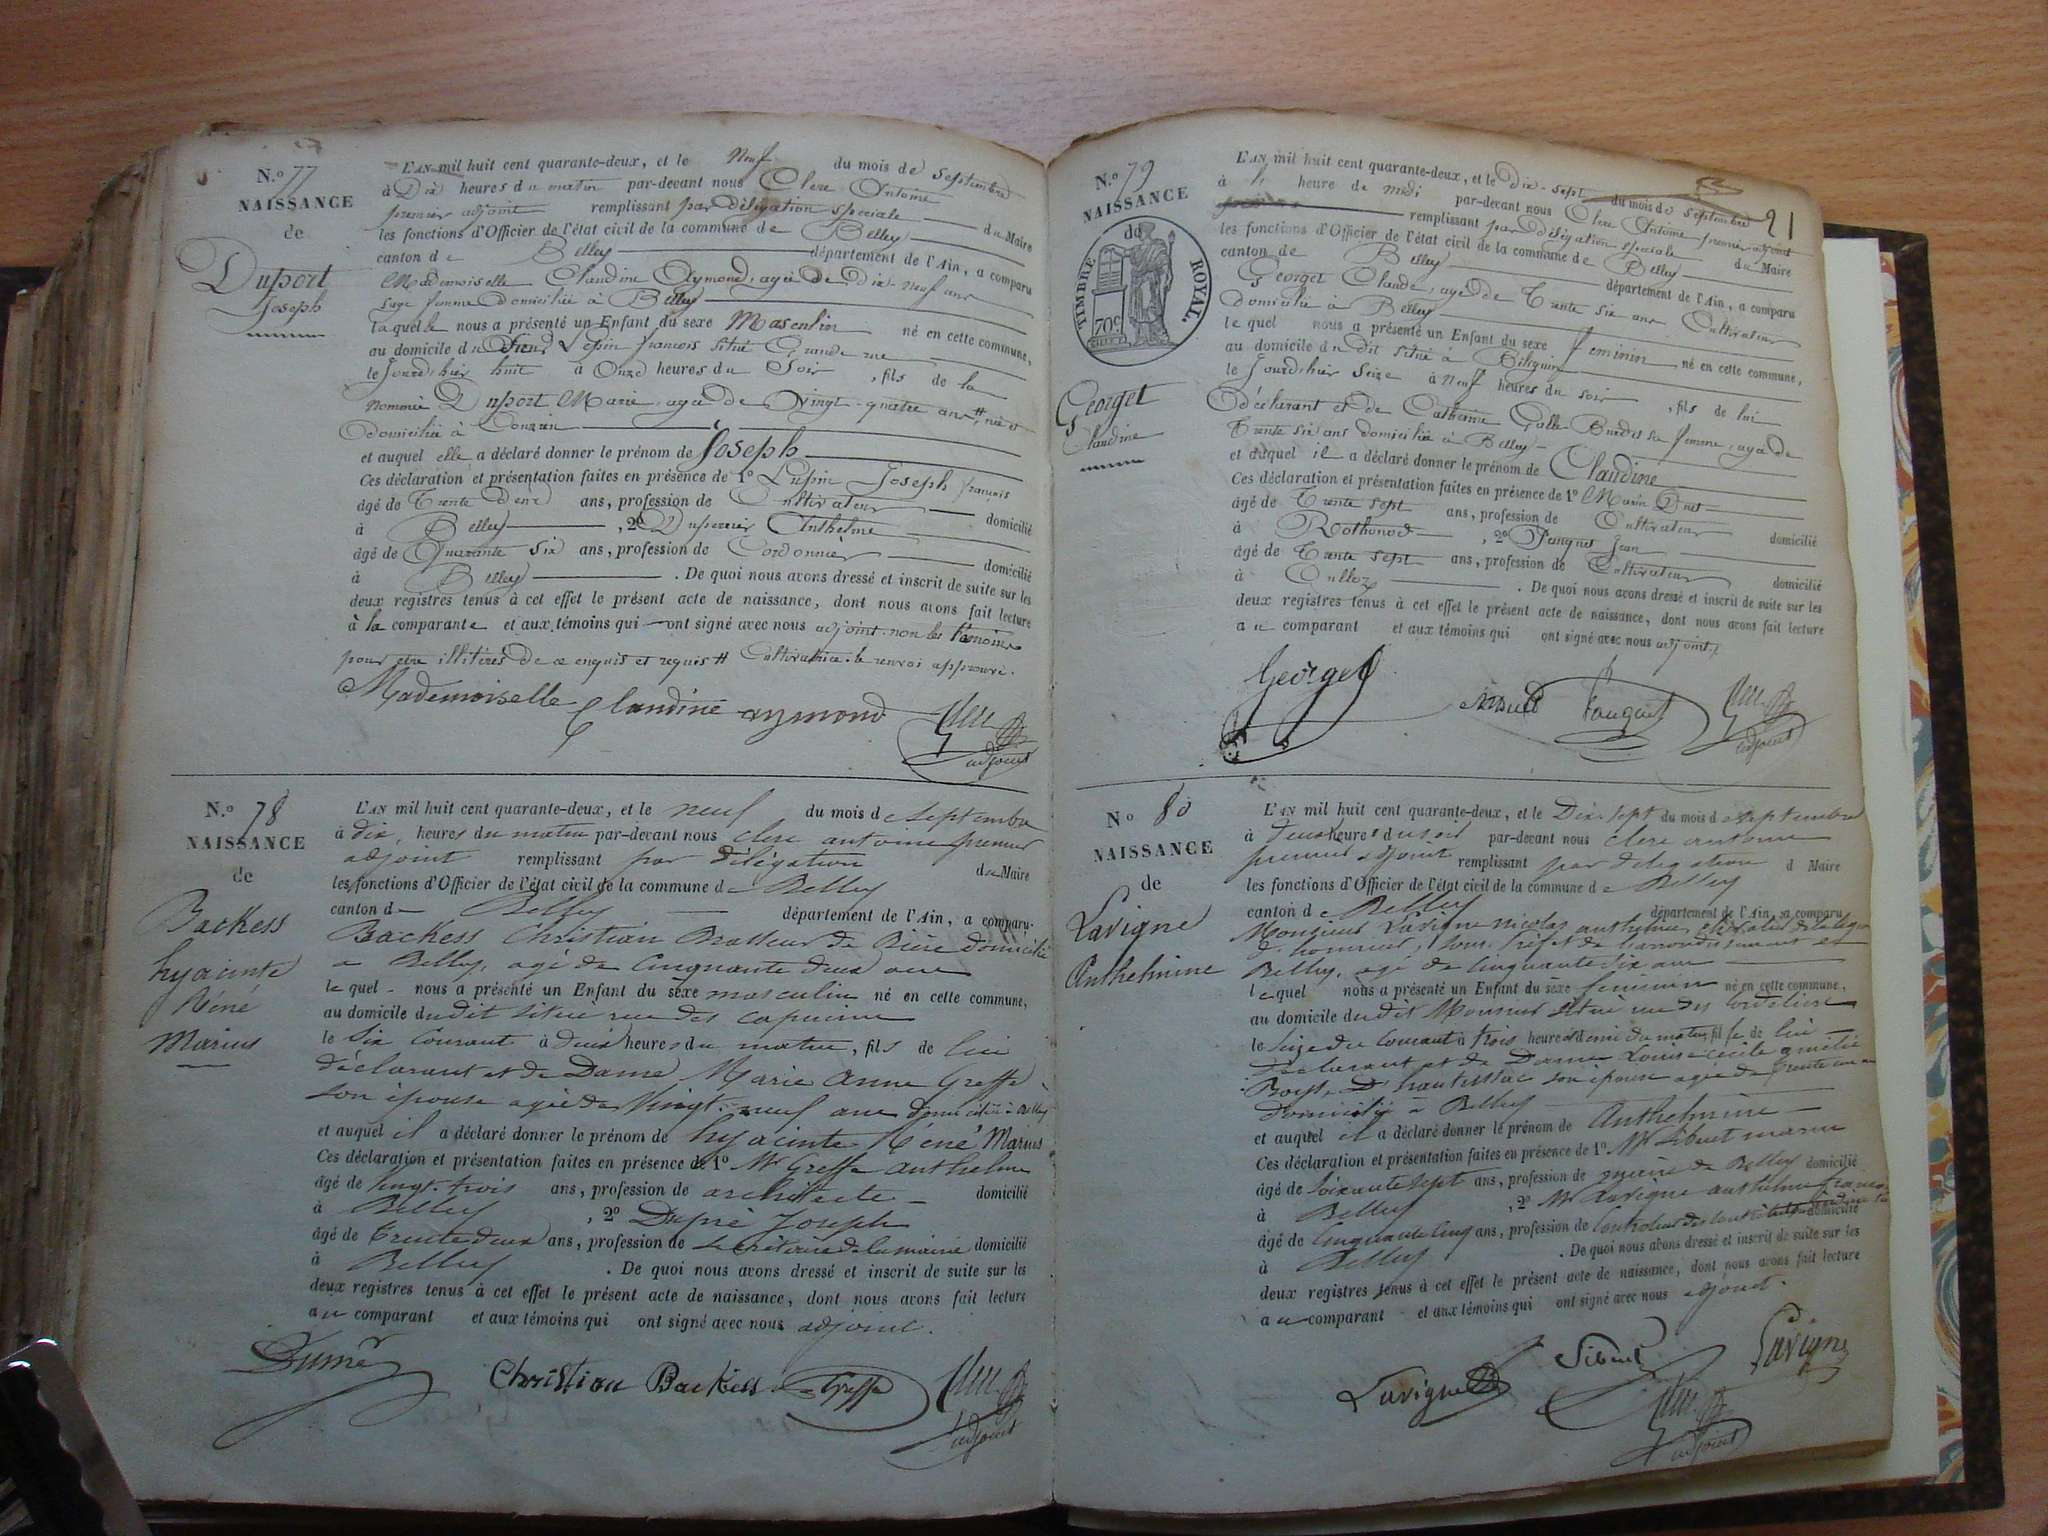 N.º 77
NAISSANCE
de
Duport
Joseph
L'AN mil huit cent quarante-deux, et le Neuf du mois de septembre
à Dix heures du matin par-devant nous Clerc Antoine
premier adjoint remplissant par délégation speciale du Maire
les fonctions d'Officier de l'état civil de la commune de Belley
canton de Belley département de l'Ain, a comparu
Mademoiselle Claudine Aymond, agée de Dix neuf ans
sage femme domiciliée à Belley
laquelle nous a présenté un Enfant du sexe Masculin né en cette commune,
au domicile du Lepin francois situé Grande rue
le Jourd'hier huit à Onze heures du Soir, fils de la
nommée Duport Marie agée de Vingt-quatre ans #, née et
domiciliée à Conzieu
et auquel elle a déclaré donner le prénom de Joseph
Ces déclaration et présentation faites en présence de 1º Lupin Joseph françois
âgé de Trente Deux ans, profession de Cultivateur domicilié
à Belley, 2º Duperrier Anthelme
âgé de Quarante Six ans, profession de Cordonnier domicilié
à Belley. De quoi nous avons dressé et inscrit de suite sur les
deux registres tenus à cet effet le présent acte de naissance, dont nous avons fait lecture
à la comparante et aux témoins qui ont signé avec nous adjoint non les témoins
pour etre illitérés de ce enquis et requis # Cultivatrice. le renvoi approuvé.
Mademoiselle Claudine aymond
adjoint
N.º 78
NAISSANCE
de
Backess
hyacinte
Réné
Marius
L'AN mil huit cent quarante-deux, et le neuf du mois de septembre
à dix heures du matin par-devant nous clerc antoine premier
adjoint remplissant par délégation du Maire
les fonctions d'Officier de l'état civil de la commune de Belley
canton de Belley département de l'Ain, a comparu
Backess Christian Brasseur de Bière domicilié
a Belley, agé de Cinquante deux ans
lequel nous a présenté un Enfant du sexe masculin né en cette commune,
au domicile du dit situé rue des capucins
le six Courant à deux heures du matin, fils de lui
déclarant et de Dame Marie Anne Greffe
son épouse agée de Vingt-neuf ans domiciliée à Belley
et auquel il a déclaré donner le prénom de hyacinte Réné Marius
Ces déclaration et présentation faites en présence de 1º Mr Greffe anthelme
âgé de Vingt-trois ans, profession de architecte domicilié
à Belley, 2º Dupré Joseph
âgé de Trente deux ans, profession de secrétaire de la mairie domicilié
à Belley. De quoi nous avons dressé et inscrit de suite sur les
deux registres tenus à cet effet le présent acte de naissance, dont nous avons fait lecture
au comparant et aux témoins qui ont signé avec nous adjoint.
Christian Backess Greffe
adjoint
91
N.º 79
NAISSANCE
de
TIMBRE ROYAL.
70c
Georget
Claudine
L'AN mil huit cent quarante-deux, et le dix-sept du mois de septembre
à heure de midi par-devant nous Clerc Antoine premier adjoint
remplissant par délégation speciale du Maire
les fonctions d'Officier de l'état civil de la commune de Belley
canton de Belley département de l'Ain, a comparu
Georget Claude, agé de Trente six ans Cultivateur
domicilié à Belley
lequel nous a présenté un Enfant du sexe feminin né en cette commune,
au domicile du dit situé à
le Jourd'hier seize à Neuf heures du soir, fils de lui
déclarant et de Catherine Galle Burdet sa femme, agée de
Trente six ans domiciliée à Belley
et auquel il a déclaré donner le prénom de Claudine
Ces déclaration et présentation faites en présence de 1º
âgé de Trente sept ans, profession de Cultivateur domicilié
à Rothonod, 2º Fouguet Jean
âgé de Trente sept ans, profession de Cultivateur domicilié
à Culloz. De quoi nous avons dressé et inscrit de suite sur les
deux registres tenus à cet effet le présent acte de naissance, dont nous avons fait lecture
au comparant et aux témoins qui ont signé avec nous adjoint
Georget Fouguet
adjoint
Nº 80
NAISSANCE
de
Lavigne
Anthelmine
L'AN mil huit cent quarante-deux, et le Dix-sept du mois de septembre
à deux heures du soir par-devant nous clerc antoine
premier adjoint remplissant par délégation d Maire
les fonctions d'Officier de l'état civil de la commune de Belley
canton de Belley département de l'Ain, a comparu
Monsieur Lavigne nicolas anthelme, chevalier de la légion
d'honneur, sous-préfet de l'arrondissement de
Belley, agé de Cinquante six ans
lequel nous a présenté un Enfant du sexe feminin né en cette commune,
au domicile du dit Monsieur situé rue des Cordeliers
le seize du Courant à trois heures et demi du matin, fille de lui
déclarant et de Dame Louise cécile amélie
son épouse agée de trente un ans
domiciliée à Belley
et auquel il a déclaré donner le prénom de Anthelmine
Ces déclaration et présentation faites en présence de 1º Mr Sibuet
âgé de soixante sept ans, profession de maire de Belley domicilié
à Belley, 2º Mr Lavigne anthelme françois
âgé de Cinquante Cinq ans, profession de domicilié
à Belley. De quoi nous avons dressé et inscrit de suite sur les
deux registres tenus à cet effet le présent acte de naissance, dont nous avons fait lecture
au comparant et aux témoins qui ont signé avec nous adjoint.
Lavigne Sibuet Lavigne
adjoint